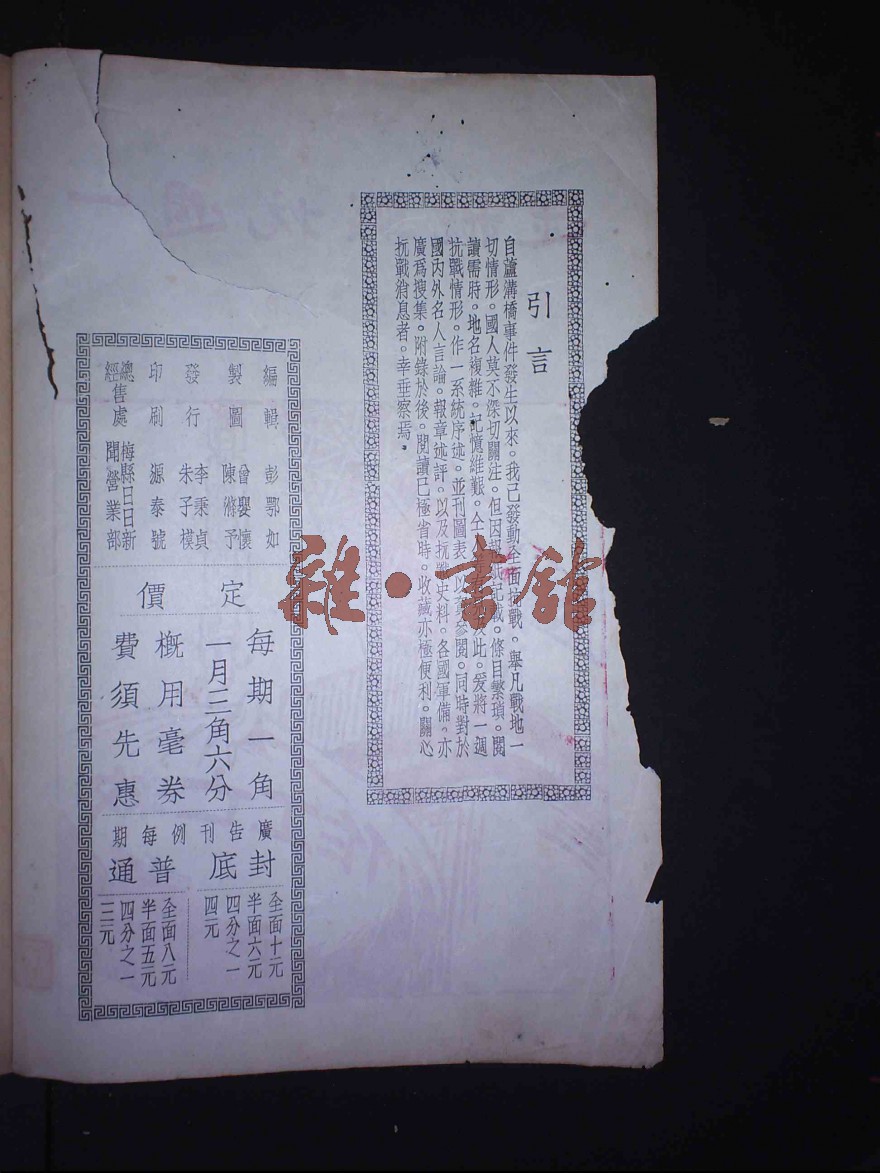 引言
自蘆溝橋事件發生以來。我已發動全面抗戰。舉凡戰地一
切情形。國人莫不深切關注。但因報章記載。條目繁瑣。閱
讀需時。地名複雜。記憶維艱。仝人
此。爰將一週
抗戰情形。作一系統序述。並刊圖表。以資參閱。同時對於
國內外名人言論。報章述評。以及抗戰史料。各國軍備。亦
廣爲搜集。附錄於後。閱讀已極省時。收藏亦極便利。關心
抗戰消息者。幸垂察焉。
編輯 彭鄂如
製圖 曾嬰懷 陳滌予
發行 李秉貞 朱子模
印刷 源泰號
總經售處 梅縣日日新聞營業部
定價
每期一角
一月三角六分
概用毫券
費須先惠
廣告刊例每期
封底
全面十元
半面六元
四分之一
四元
普通
全面八元
半面五元
四分之一
三元
雜·書館